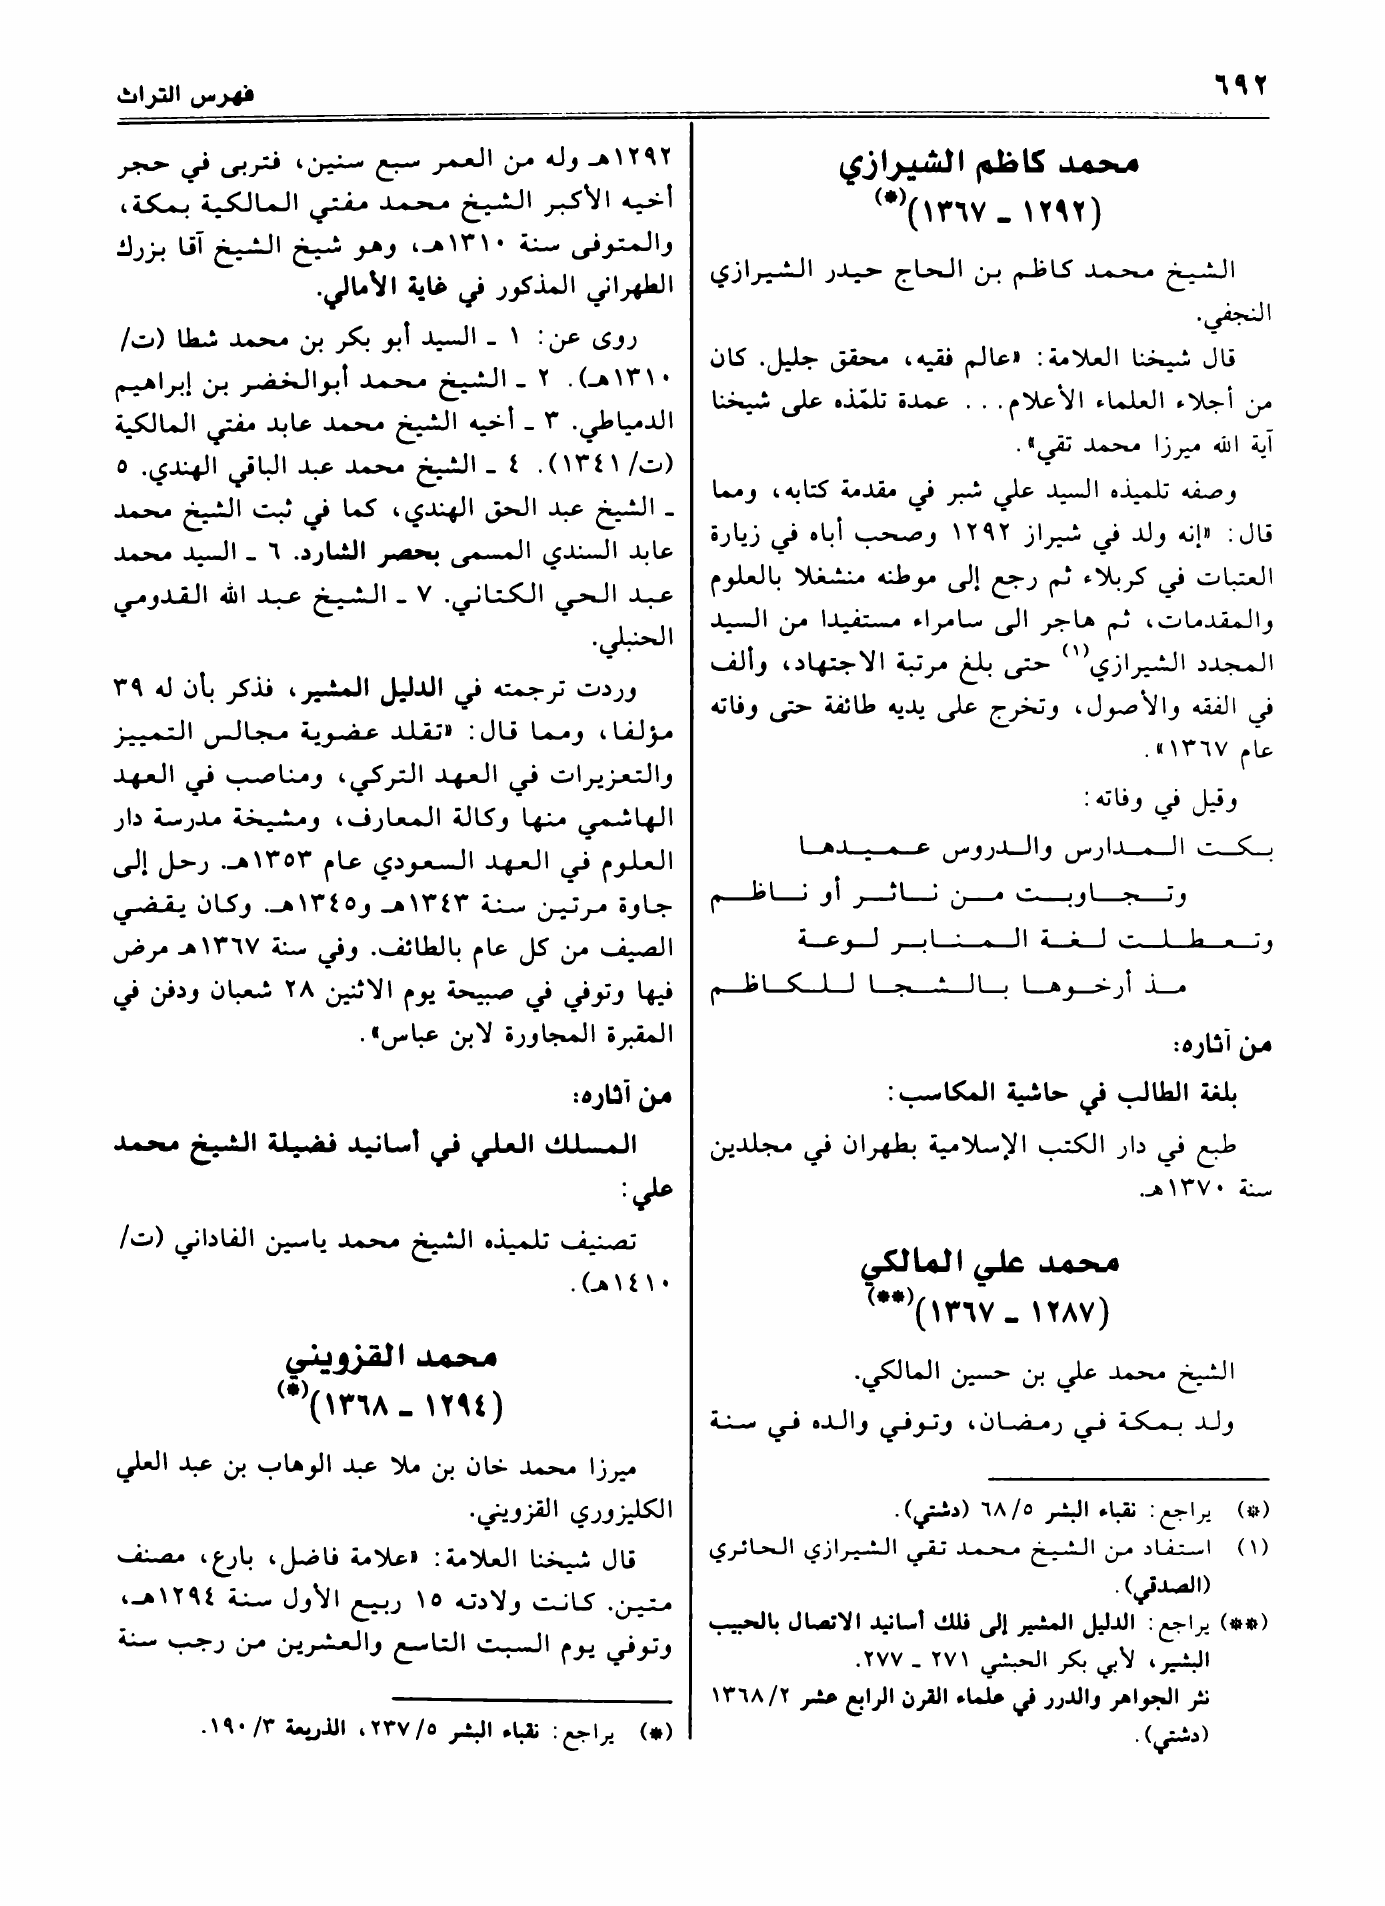 ٦٩٢
فهرس التراث
محمد كاظم الشيرازي
(١٢٩٢ ـ ١٣٦٧)(*)
الشيخ محمد كاظم بن الحاج حيدر الشيرازي
النجفي.
قال شيخنا العلامة: «عالم فقيه، محقق جليل. كان
من أجلاء العلماء الأعلام... عمدة تلمّذه على شيخنا
آية الله ميرزا محمد تقي».
وصفه تلميذه السيد علي شبر في مقدمة كتابه، ومما
قال: «إنه ولد في شيراز ١٢٩٢ وصحب أباه في زيارة
العتبات في كربلاء ثم رجع إلى موطنه منشغلا بالعلوم
والمقدمات، ثم هاجر الى سامراء مستفيدا من السيد
المجدد الشيرازي(١) حتى بلغ مرتبة الاجتهاد، وألف
في الفقه والأصول، وتخرج على يديه طائفة حتى وفاته
عام ١٣٦٧».
وقيل في وفاته:
بكت المدارس والدروس عميدها
وتجاوبت من ناثر أو ناظم
وتعطلت لغة المنابر لوعة
مذ أرخوها بالشجا للكاظم
من آثاره:
بلغة الطالب في حاشية المكاسب:
طبع في دار الكتب الإسلامية بطهران في مجلدين
سنة ١٣٧٠هـ.
محمد علي المالكي
(١٢٨٧ ـ ١٣٦٧)(**)
الشيخ محمد علي بن حسين المالكي.
ولد بمكة في رمضان، وتوفي والده في سنة
(*) يراجع: نقباء البشر ٥/ ٦٨ (دشتي).
(١) استفاد من الشيخ محمد تقي الشيرازي الحائري
(الصدقي).
(**) يراجع: الدليل المشير إلى فلك أسانيد الاتصال بالحبيب
البشير، لأبي بكر الحبشي ٢٧١ ـ ٢٧٧.
نثر الجواهر والدرر في علماء القرن الرابع عشر ٢/ ١٣٦٨
(دشتي).
١٢٩٢هـ وله من العمر سبع سنين، فتربى في حجر
أخيه الأكبر الشيخ محمد مفتي المالكية بمكة،
والمتوفى سنة ١٣١٠هـ، وهو شيخ الشيخ آقا بزرك
الطهراني المذكور في غاية الأمالي.
روى عن: ١ ـ السيد أبو بكر بن محمد شطا (ت/
١٣١٠هـ). ٢ ـ الشيخ محمد أبوالخضر بن إبراهيم
الدمياطي. ٣ ـ أخيه الشيخ محمد عابد مفتي المالكية
(ت/ ١٣٤١). ٤ ـ الشيخ محمد عبد الباقي الهندي. ٥
ـ الشيخ عبد الحق الهندي، كما في ثبت الشيخ محمد
عابد السندي المسمى بحصر الشارد. ٦ ـ السيد محمد
عبد الحي الكتاني. ٧ ـ الشيخ عبد الله القدومي
الحنبلي.
وردت ترجمته في الدليل المشير، فذكر بأن له ٣٩
مؤلفا، ومما قال: «تقلد عضوية مجالس التمييز
والتعزيرات في العهد التركي، ومناصب في العهد
الهاشمي منها وكالة المعارف، ومشيخة مدرسة دار
العلوم في العهد السعودي عام ١٣٥٣هـ. رحل إلى
جاوة مرتين سنة ١٣٤٣هـ و١٣٤٥هـ. وكان يقضي
الصيف من كل عام بالطائف. وفي سنة ١٣٦٧هـ مرض
فيها وتوفي في صبيحة يوم الاثنين ٢٨ شعبان ودفن في
المقبرة المجاورة لابن عباس».
من آثاره:
المسلك العلي في أسانيد فضيلة الشيخ محمد
علي:
تصنيف تلميذه الشيخ محمد ياسين الفاداني (ت/
١٤١٠هـ).
محمد القزويني
(١٢٩٤ ـ ١٣٦٨)(*)
ميرزا محمد خان بن ملا عبد الوهاب بن عبد العلي
الكليزوري القزويني.
قال شيخنا العلامة: «علامة فاضل، بارع، مصنف
متين. كانت ولادته ١٥ ربيع الأول سنة ١٢٩٤هـ،
وتوفي يوم السبت التاسع والعشرين من رجب سنة
(*) يراجع: نقباء البشر ٥/ ٢٣٧، الذريعة ٣/ ١٩٠.